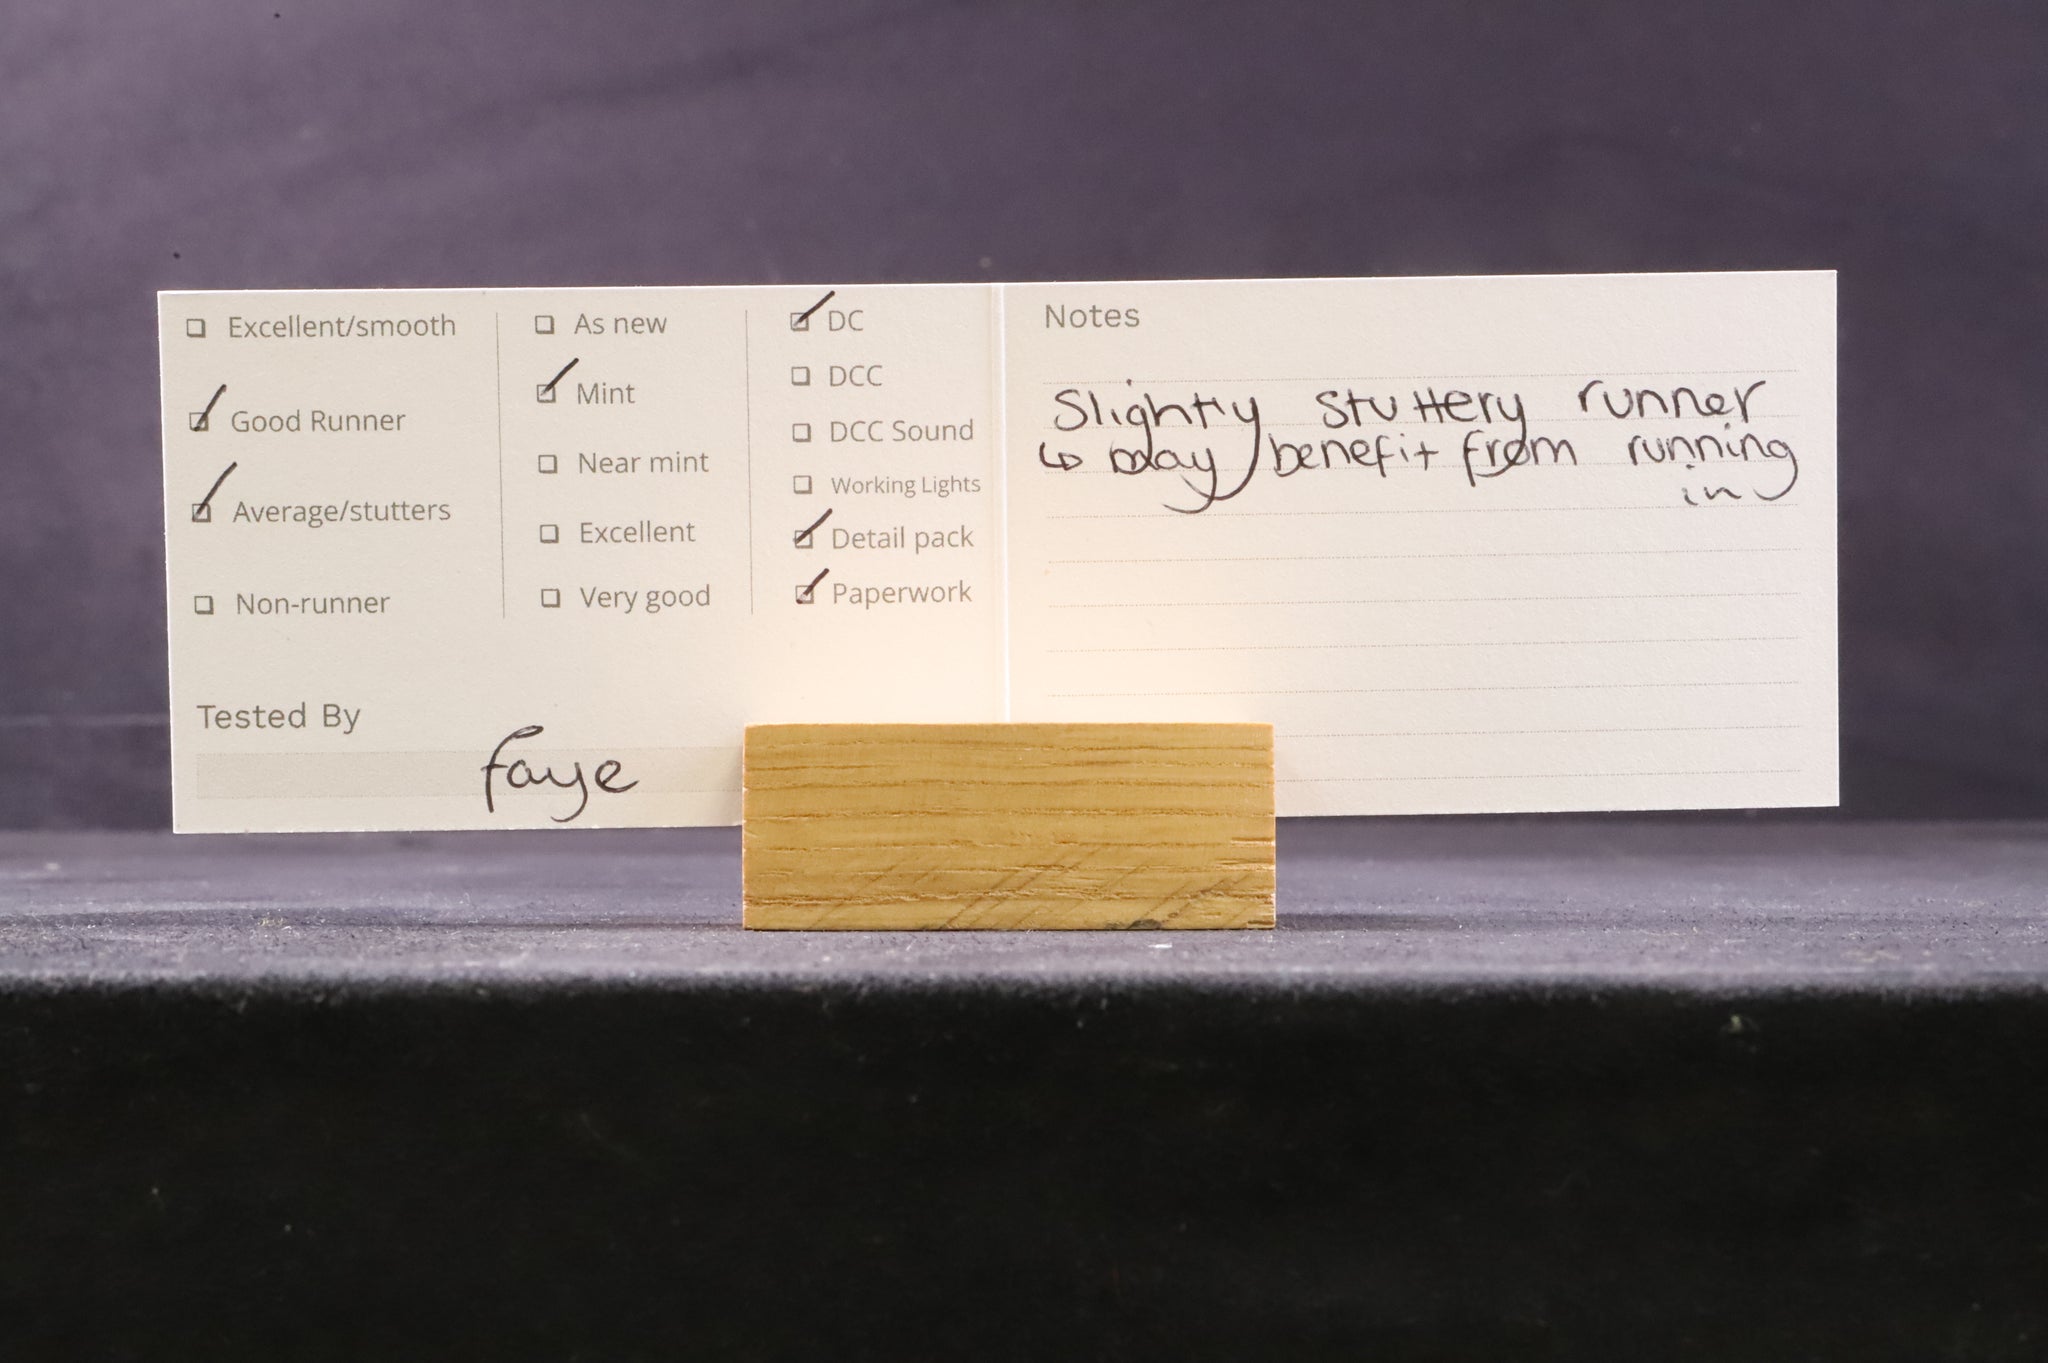 Excellent/smooth
Good Runner
Average/stutters
Non-runner
As new
Mint
Near mint
Excellent
Very good
DC
DCC
DCC Sound
Working Lights
Detail pack
Paperwork
Tested By
faye
Notes
Slightly stuttery runner
↳ may benefit from running
in